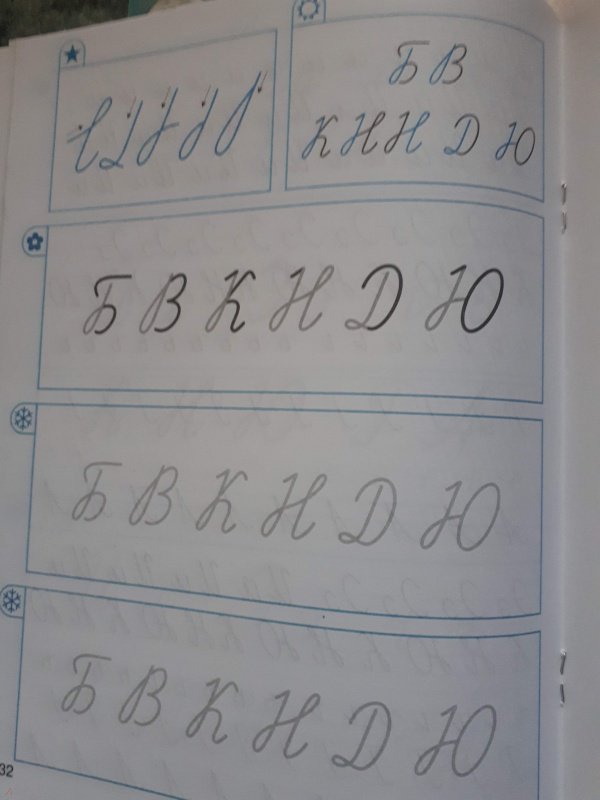 Б В
К Н Н Д Ю
Б В К Н Д Ю
Б В К Н Д Ю
Б В К Н Д Ю
32